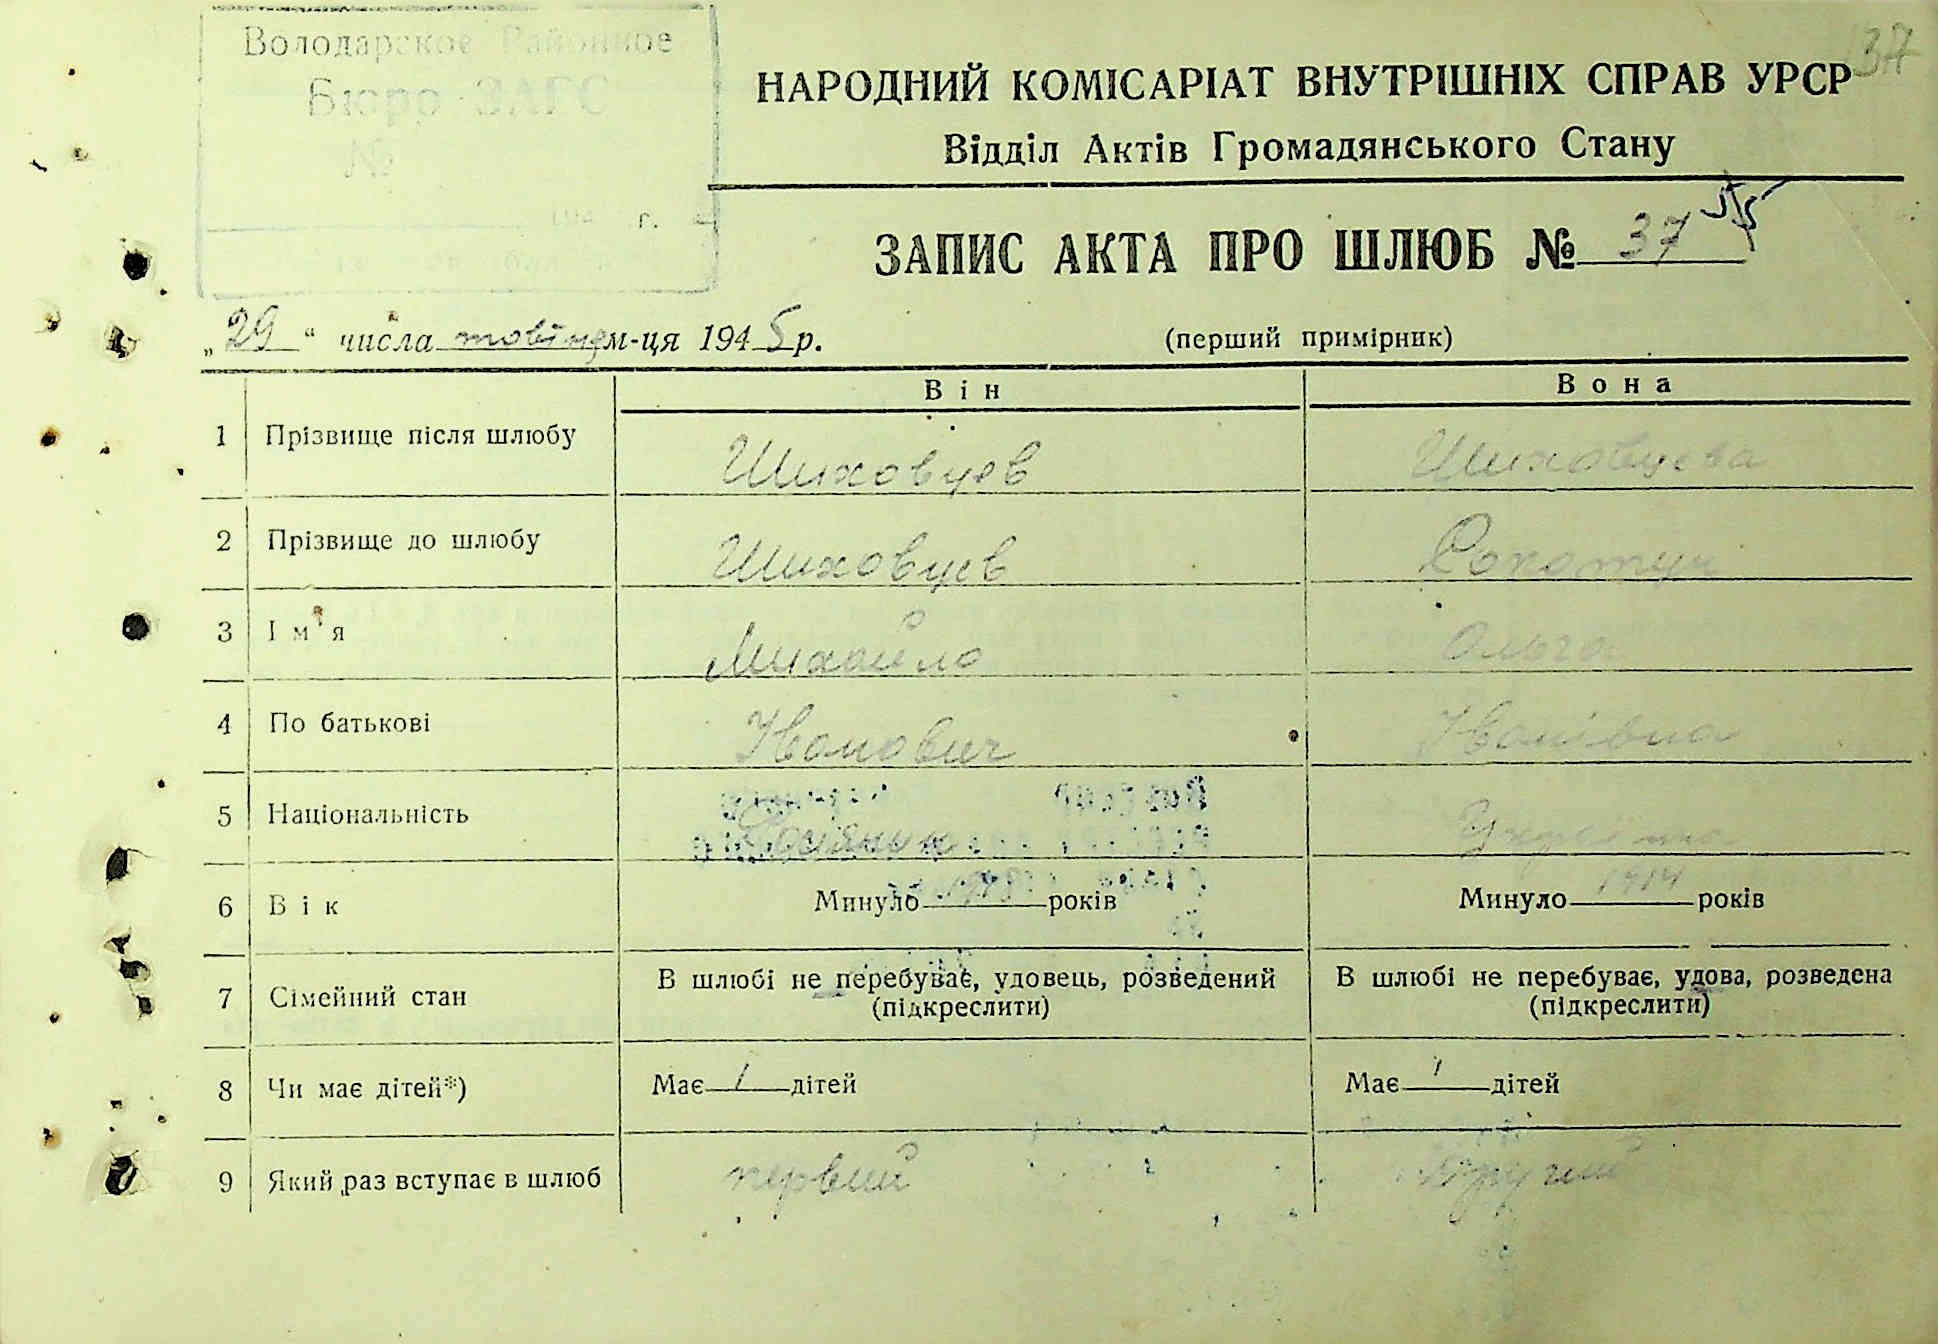 Володарское Районное
Бюро ЗАГС
№
194 г.
137
НАРОДНИЙ КОМІСАРІАТ ВНУТРІШНІХ СПРАВ УРСР
Відділ Актів Громадянського Стану
ЗАПИС АКТА ПРО ШЛЮБ № 37
„29“ числа м-ця 1945 р.
(перший примірник)
Він Вона
1 Прізвище після шлюбу Шиховцев Шиховцева
2 Прізвище до шлюбу Шиховцев
3 Ім'я Михайло Ольга
4 По батькові Іванович Іванівна
5 Національність Українка
6 Вік Минуло років Минуло 1914 років
7 Сімейний стан В шлюбі не перебуває, удовець, розведений (підкреслити) В шлюбі не перебуває, удова, розведена (підкреслити)
8 Чи має дітей*) Має 1 дітей Має 1 дітей
9 Який раз вступає в шлюб первий другий